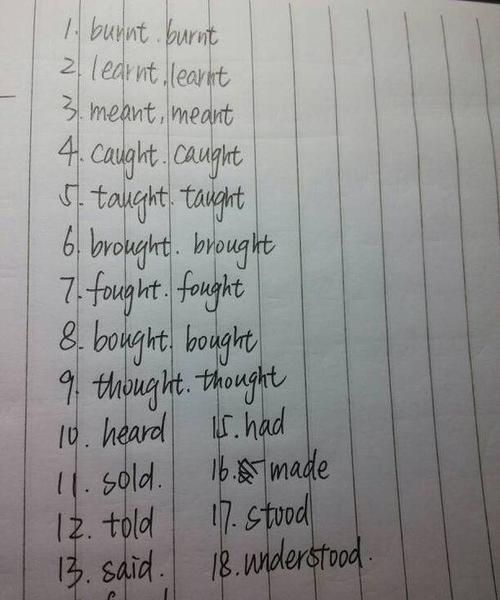 1. burnt. burnt
2. learnt, learnt
3. meant, meant
4. caught. caught
5. taught. taught
6. brought. brought
7. fought. fought
8. bought. bought
9. thought. thought
10. heard 15. had
11. sold. 16. made
12. told 17. stood
13. said. 18. understood.